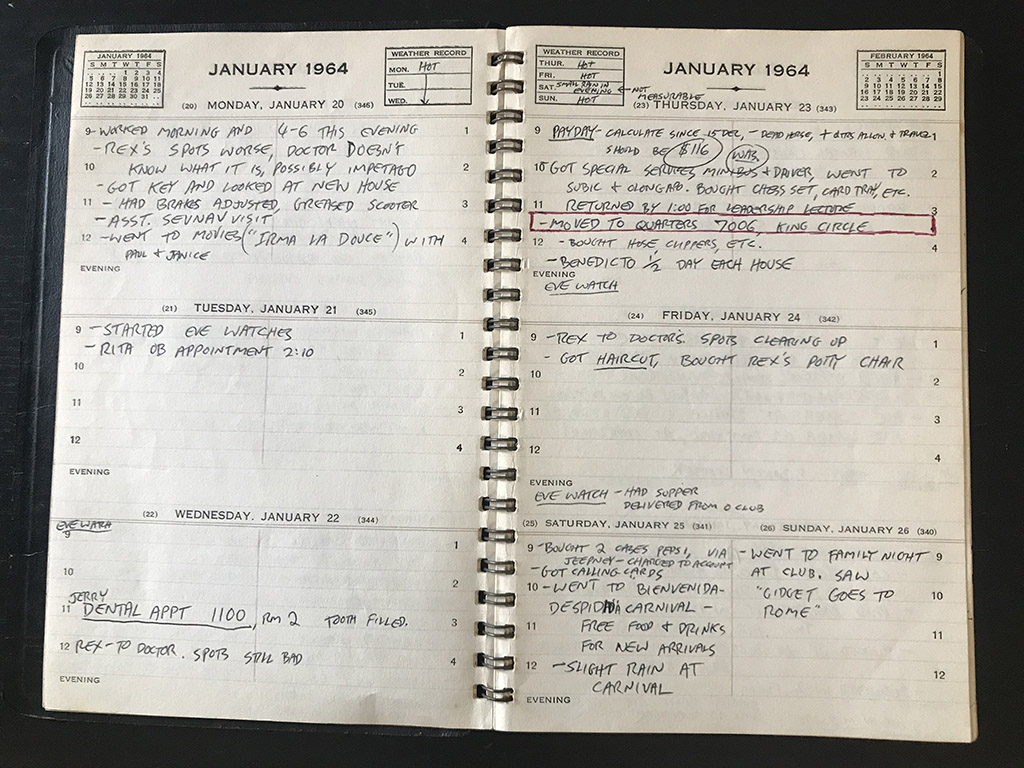 JANUARY 1964
S M T W T F S
1 2 3 4
5 6 7 8 9 10 11
12 13 14 15 16 17 18
19 20 21 22 23 24 25
26 27 28 29 30 31
JANUARY 1964
WEATHER RECORD
MON. HOT
TUE.
WED.
(20) MONDAY, JANUARY 20 (346)
9 - WORKED MORNING AND 4-6 THIS EVENING 1
- REX'S SPOTS WORSE, DOCTOR DOESN'T
10 KNOW WHAT IT IS, POSSIBLY IMPETAGO 2
- GOT KEY AND LOOKED AT NEW HOUSE
11 - HAD BRAKES ADJUSTED, GREASED SCOOTER 3
- ASST. SEVNAV VISIT
12 - WENT TO MOVIES ("IRMA LA DOUCE") WITH 4
PAUL & JANICE
EVENING
(21) TUESDAY, JANUARY 21 (345)
9 - STARTED EVE WATCHES 1
- RITA OB APPOINTMENT 2:10
10 2
11 3
12 4
EVENING
(22) WEDNESDAY, JANUARY 22 (344)
EVE WATCH
9 1
10 2
JERRY
11 DENTAL APPT 1100, RM 2 TOOTH FILLED. 3
12 REX - TO DOCTOR. SPOTS STILL BAD 4
EVENING
WEATHER RECORD
THUR. HOT
FRI. HOT
SAT. SMALL RAIN IN EVENING ← NOT MEASURABLE
SUN. HOT
JANUARY 1964
FEBRUARY 1964
S M T W T F S
1
2 3 4 5 6 7 8
9 10 11 12 13 14 15
16 17 18 19 20 21 22
23 24 25 26 27 28 29
(23) THURSDAY, JANUARY 23 (343)
9 PAYDAY - CALCULATE SINCE 15 DEC, - DEAD HORSE, + QTRS ALLOW. & TRAVEL 1
SHOULD BE $116
10 - GOT SPECIAL SERVICES MINIBUS & DRIVER, WENT TO 2
SUBIC & OLONGAPO. BOUGHT CHESS SET, CARD TRAY, ETC.
11 RETURNED BY 1:00 FOR LEADERSHIP LECTURE 3
- MOVED TO QUARTERS 700G, KING CIRCLE
12 - BOUGHT HOSE CLIPPERS, ETC. 4
- BENEDICTO 1/2 DAY EACH HOUSE
EVENING
EVE WATCH
(24) FRIDAY, JANUARY 24 (342)
9 - REX TO DOCTOR'S. SPOTS CLEARING UP 1
- GOT HAIRCUT, BOUGHT REX'S POTTY CHAIR
10 2
11 3
12 4
EVENING
EVE WATCH - HAD SUPPER
DELIVERED FROM O CLUB
(25) SATURDAY, JANUARY 25 (341)
9 - BOUGHT 2 CASES PEPSI, VIA
JEEPNEY - CHARGED TO ACCOUNT
- GOT CALLING CARDS
10 - WENT TO BIENVENIDA-
DESPIDIDA CARNIVAL -
11 FREE FOOD & DRINKS
FOR NEW ARRIVALS
12 - SLIGHT RAIN AT
CARNIVAL
EVENING
(26) SUNDAY, JANUARY 26 (340)
- WENT TO FAMILY NIGHT 9
AT CLUB. SAW
"GIDGET GOES TO 10
ROME"
11
12